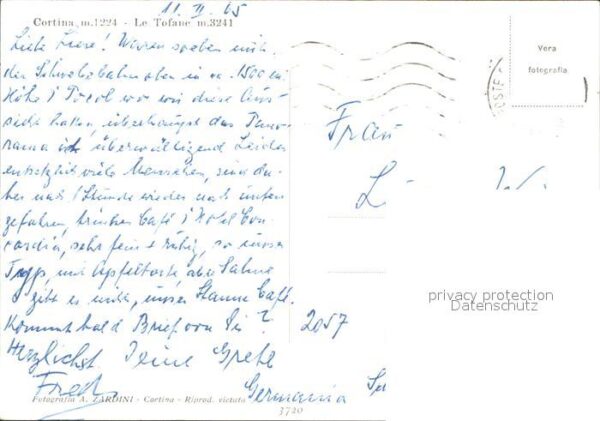 11. II. 65
Cortina m.1224 - Le Tofane m.3241
Liebe Liese! Waren soeben mit
der Schwebebahn oben in ca. 1500 m
Höhe, wo wir diese Aus-
sicht hatten, überhaupt das Pano-
rama überwältigend. Leider
entsetzlich viele Menschen, sind da-
her nach 1 Stunde wieder nach unten
gefahren, trinken Café i Hotel Con-
cordia, sehr fein + ruhig, so unser
Typ, mit Apfeltorte, aber Sahne
gibt es nicht, unser Stamm Café.
Kommt bald Brief von Dir?
Herzlichst Deine Grete
Fred
Vera
fotografia
POSTE
Frau
L
privacy protection
Datenschutz
2057
Germania
Fotografia A. ZARDINI - Cortina - Riprod. vietata
3720